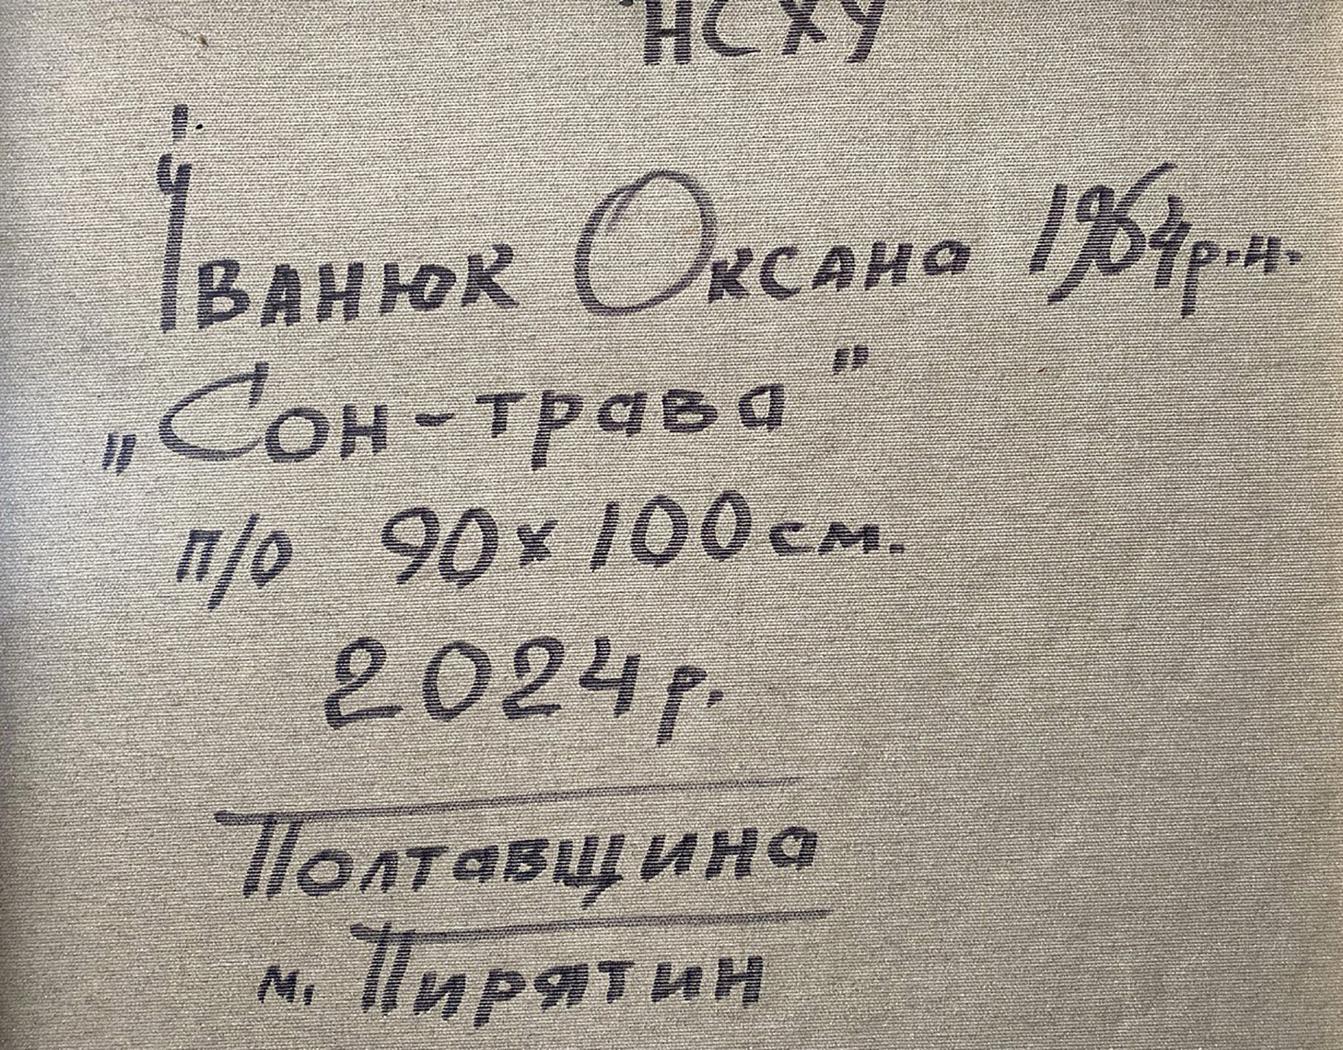 НСХУ
Іванюк Оксана 1964р.н.
„Сон-трава"
п/о 90х100см.
2024р.
Полтавщина
м. Пирятин